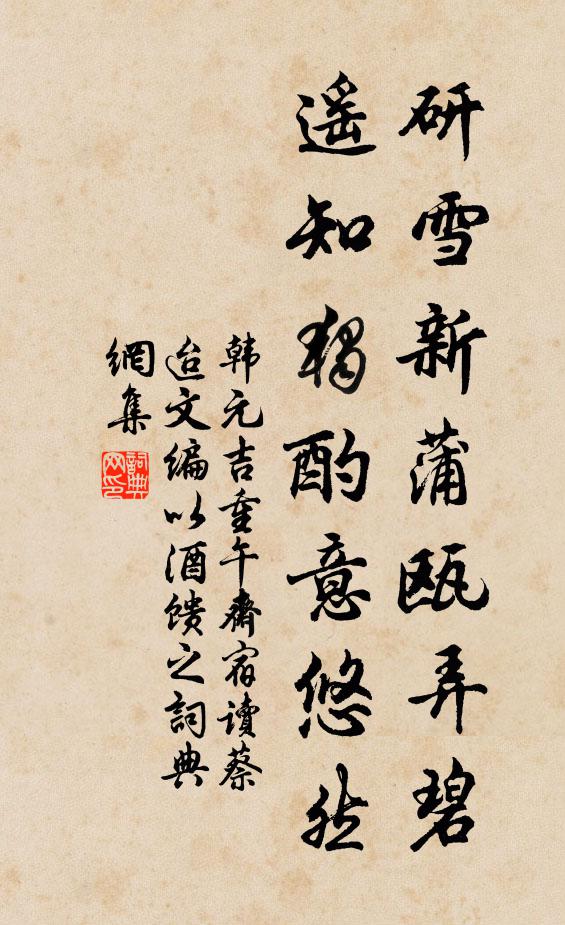 研雪新蒲瓯弄碧
遥知独酌意悠然
韩元吉重午斋宿读蔡
迨文编以酒馈之詞典
網集
詞典网印